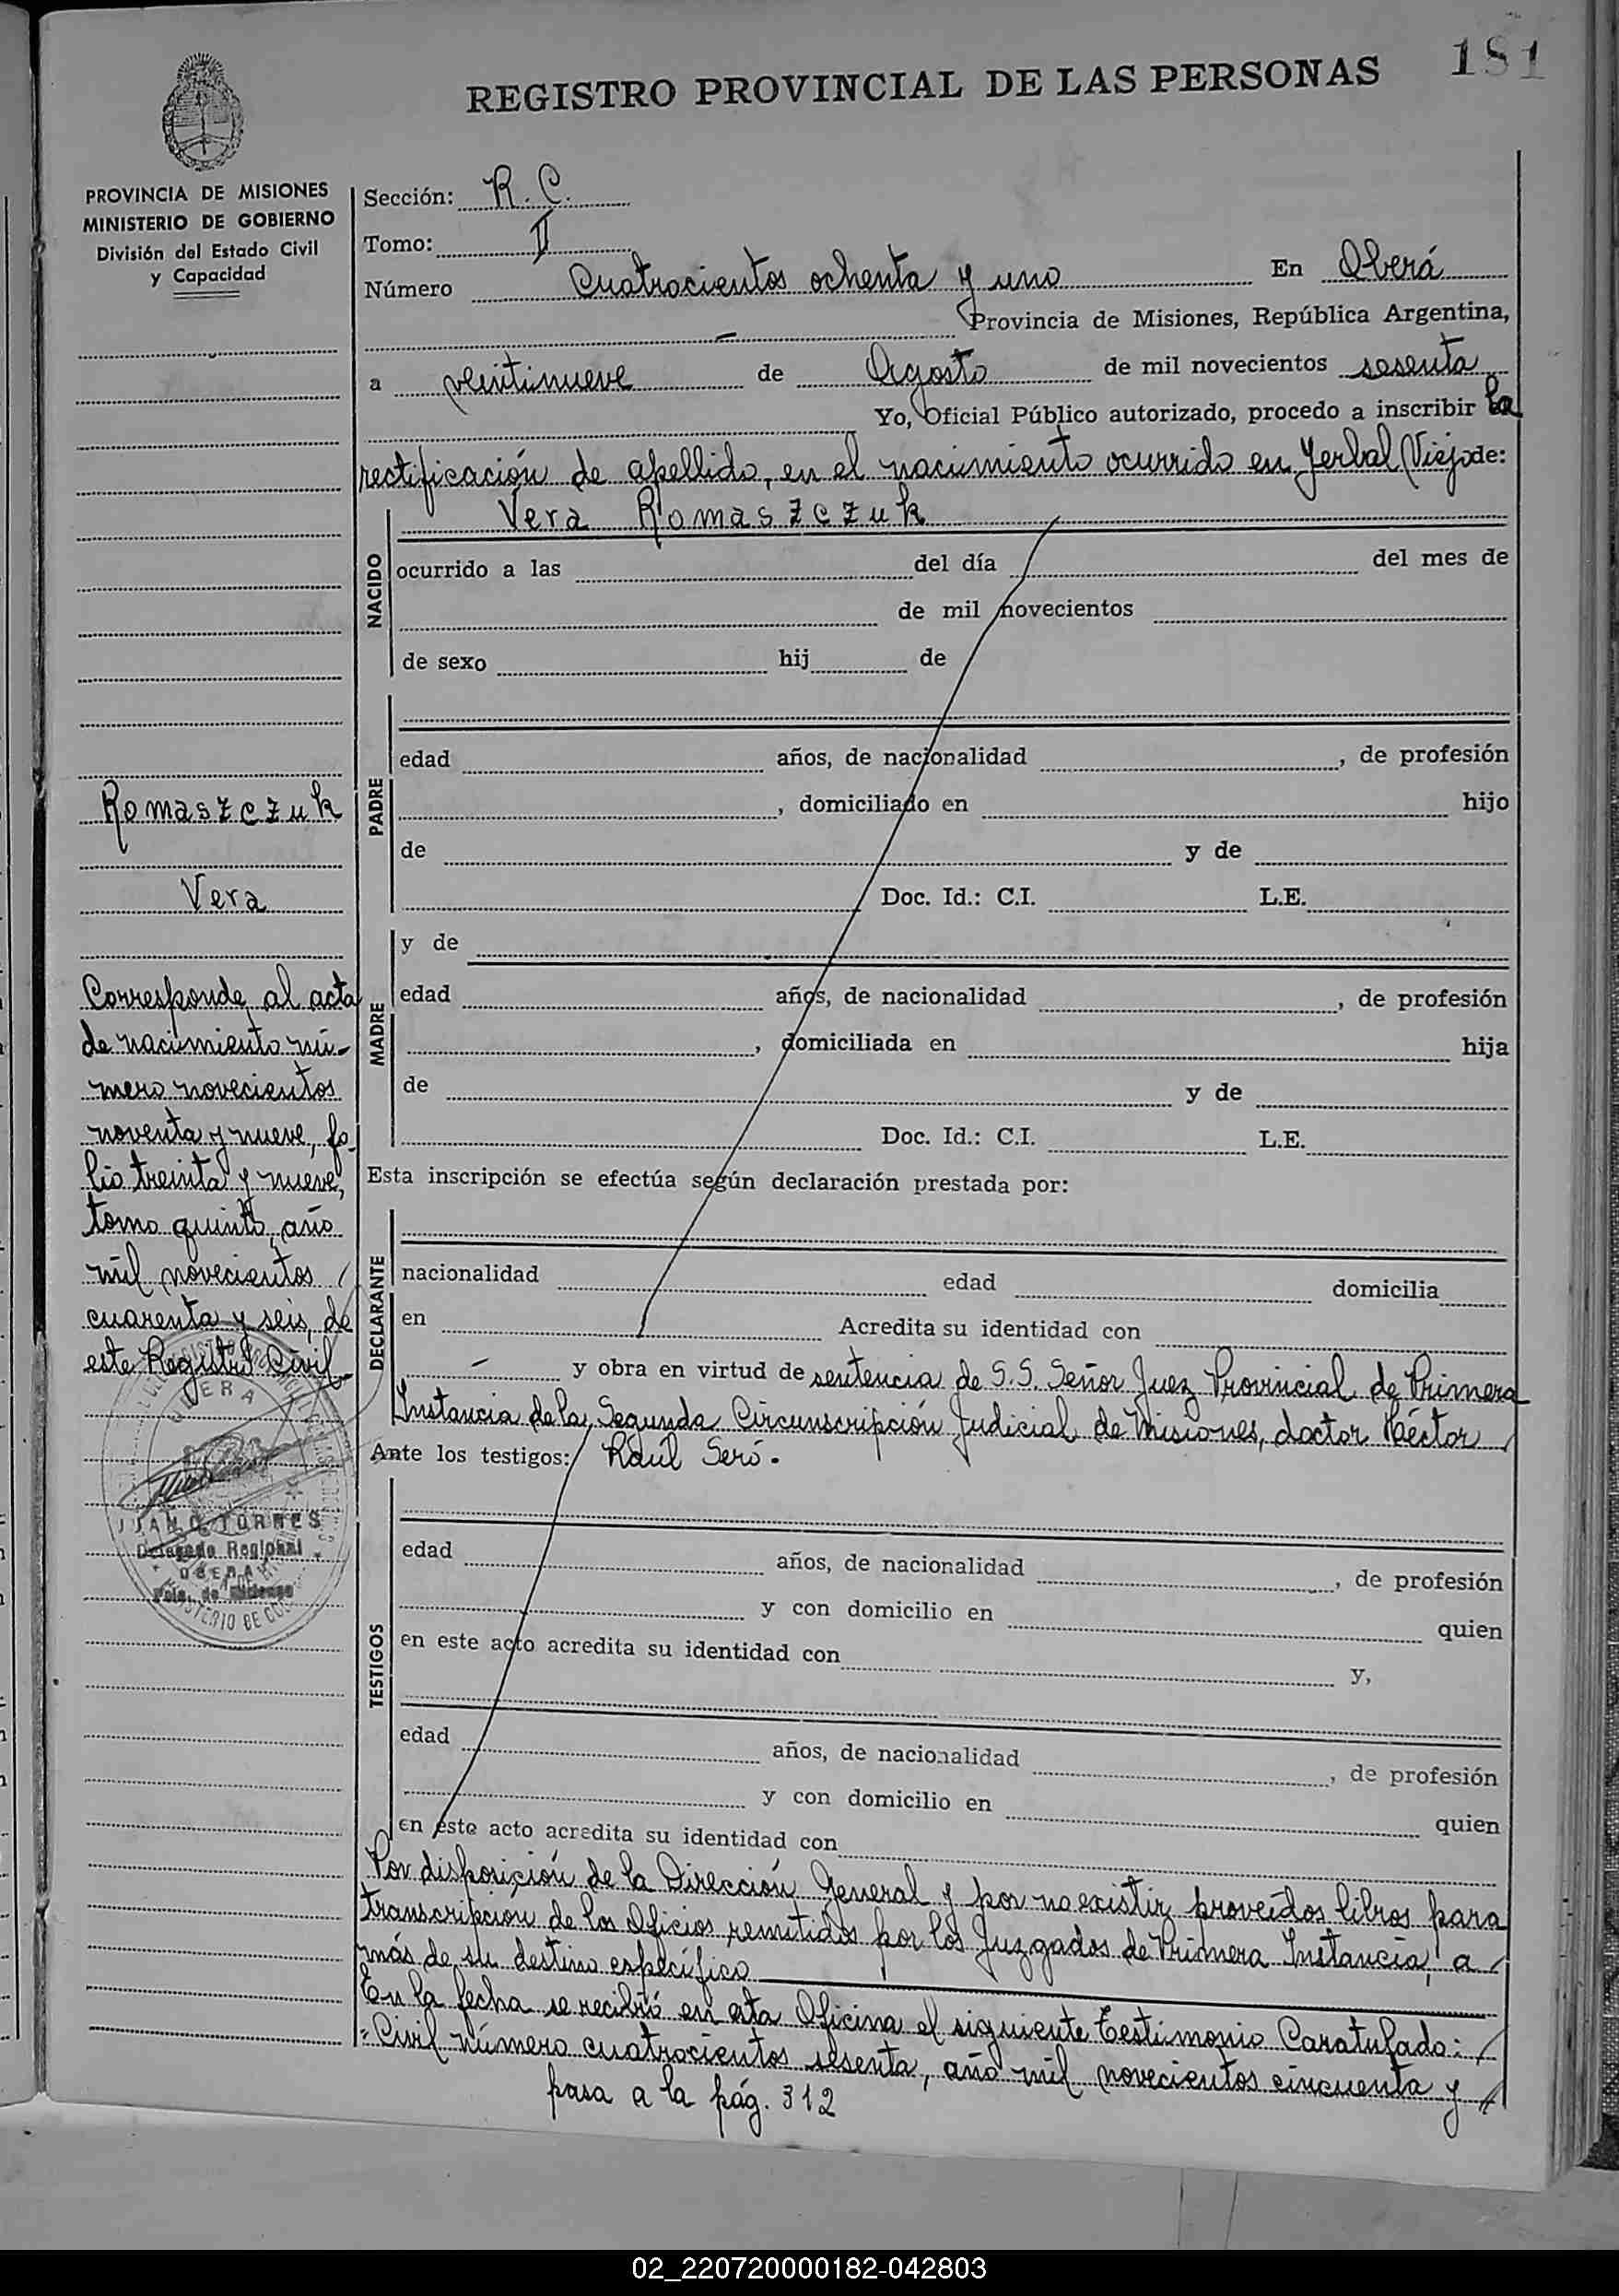 181
REGISTRO PROVINCIAL DE LAS PERSONAS
PROVINCIA DE MISIONES
MINISTERIO DE GOBIERNO
División del Estado Civil
y Capacidad
Sección: R. C.
Tomo: II
Número Cuatrocientos ochenta y uno En Oberá
Provincia de Misiones, República Argentina,
a veintinueve de Agosto de mil novecientos sesenta
Yo, Oficial Público autorizado, procedo a inscribir la
rectificación de apellido, en el nacimiento ocurrido en Yerbal Viejo de:
NACIDO
Vera Romaszczuk
ocurrido a las del día del mes de
de mil novecientos
de sexo hij de
PADRE
edad años, de nacionalidad , de profesión
, domiciliado en hijo
de y de
Doc. Id.: C.I. L.E.
MADRE
y de
edad años, de nacionalidad , de profesión
, domiciliada en hija
de y de
Doc. Id.: C.I. L.E.
Esta inscripción se efectúa según declaración prestada por:
DECLARANTE
nacionalidad edad domicilia
en Acredita su identidad con
y obra en virtud de sentencia de S.S. Señor Juez Provincial de Primera
Instancia de la Segunda Circunscripción Judicial de Misiones, doctor Héctor
Ante los testigos: Raúl Seró.
TESTIGOS
edad años, de nacionalidad , de profesión
y con domicilio en quien
en este acto acredita su identidad con y,
edad años, de nacionalidad , de profesión
y con domicilio en quien
en este acto acredita su identidad con
Por disposición de la Dirección General y por no existir proveídos libros para
transcripción de los Oficios remitidos por los Juzgados de Primera Instancia, a
más de su destino específico
En la fecha se recibió en esta Oficina el siguiente Testimonio Caratulado:
"Civil número cuatrocientos sesenta, año mil novecientos cincuenta y
pasa a la pág. 312
Romaszczuk
Vera
Corresponde al acta
de nacimiento nú-
mero novecientos
noventa y nueve, fo-
lio treinta y nueve,
tomo quinto, año
mil novecientos
cuarenta y seis, de
este Registro Civil
OBERA
JUAN C. TORRES
Delegado Regional
OBERA
Pcia. de Misiones
02_220720000182-042803